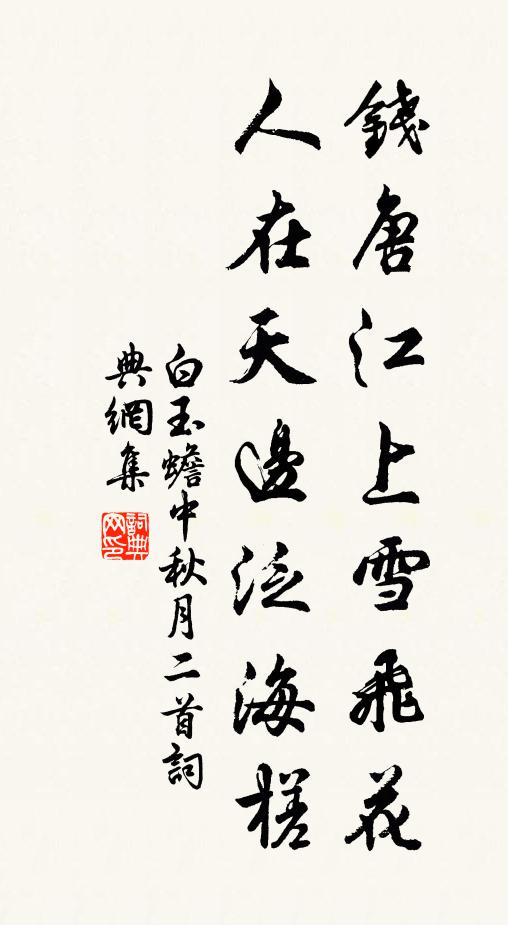 錢唐江上雪飛花
人在天邊泛海槎
白玉蟾中秋月二首詞
典網集
詞典
网印